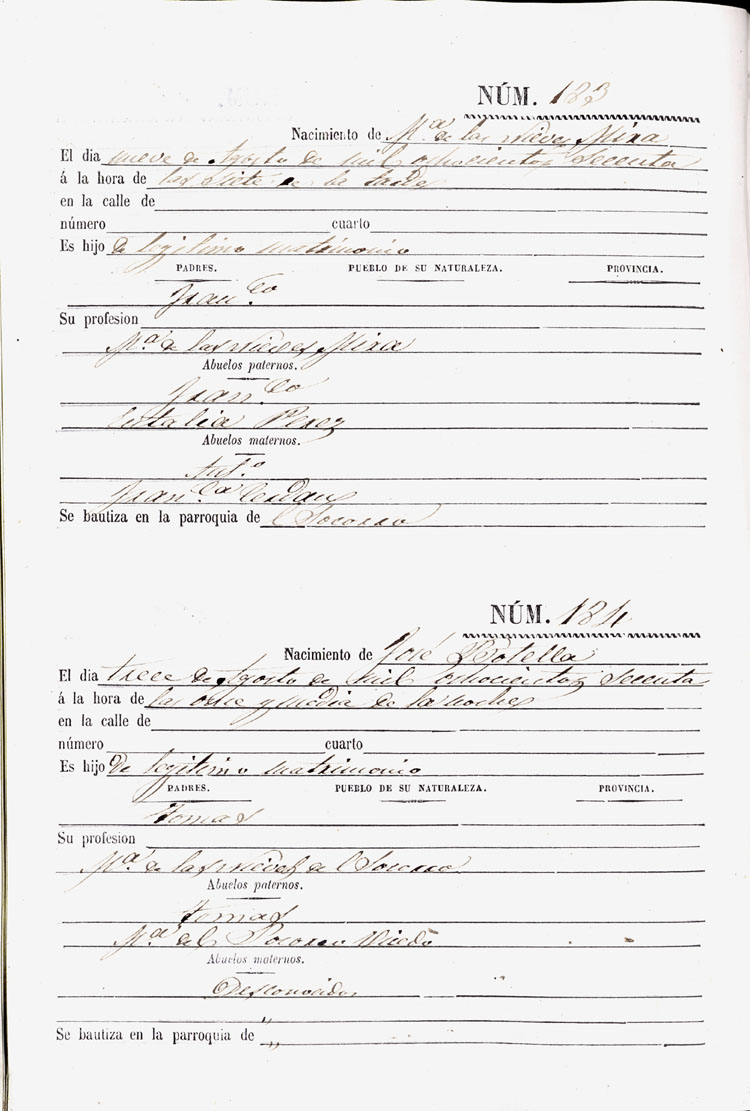 NÚM. 183
Nacimiento de Mª de las Nieves Mira
El dia nueve de Agosto de mil ochocientos secenta
á la hora de las siete de la tarde
en la calle de
número cuarto
Es hijo de legitimo matrimonio
PADRES. PUEBLO DE SU NATURALEZA. PROVINCIA.
Franco
Su profesion
Mª de las Nieves Mira
Abuelos paternos.
Franco
Eulalia Perez
Abuelos maternos.
Anto
Franca
Se bautiza en la parroquia de l Socorro
NÚM. 184
Nacimiento de José Botella
El dia trece de Agosto de mil ochocientos secenta
á la hora de las once y media de la noche
en la calle de
número cuarto
Es hijo de legitimo matrimonio
PADRES. PUEBLO DE SU NATURALEZA. PROVINCIA.
Tomas
Su profesion
Mª de las Nieves de l Socorro
Abuelos paternos.
Tomas
Mª del Socorro
Abuelos maternos.
Desconocidos
"
Se bautiza en la parroquia de "